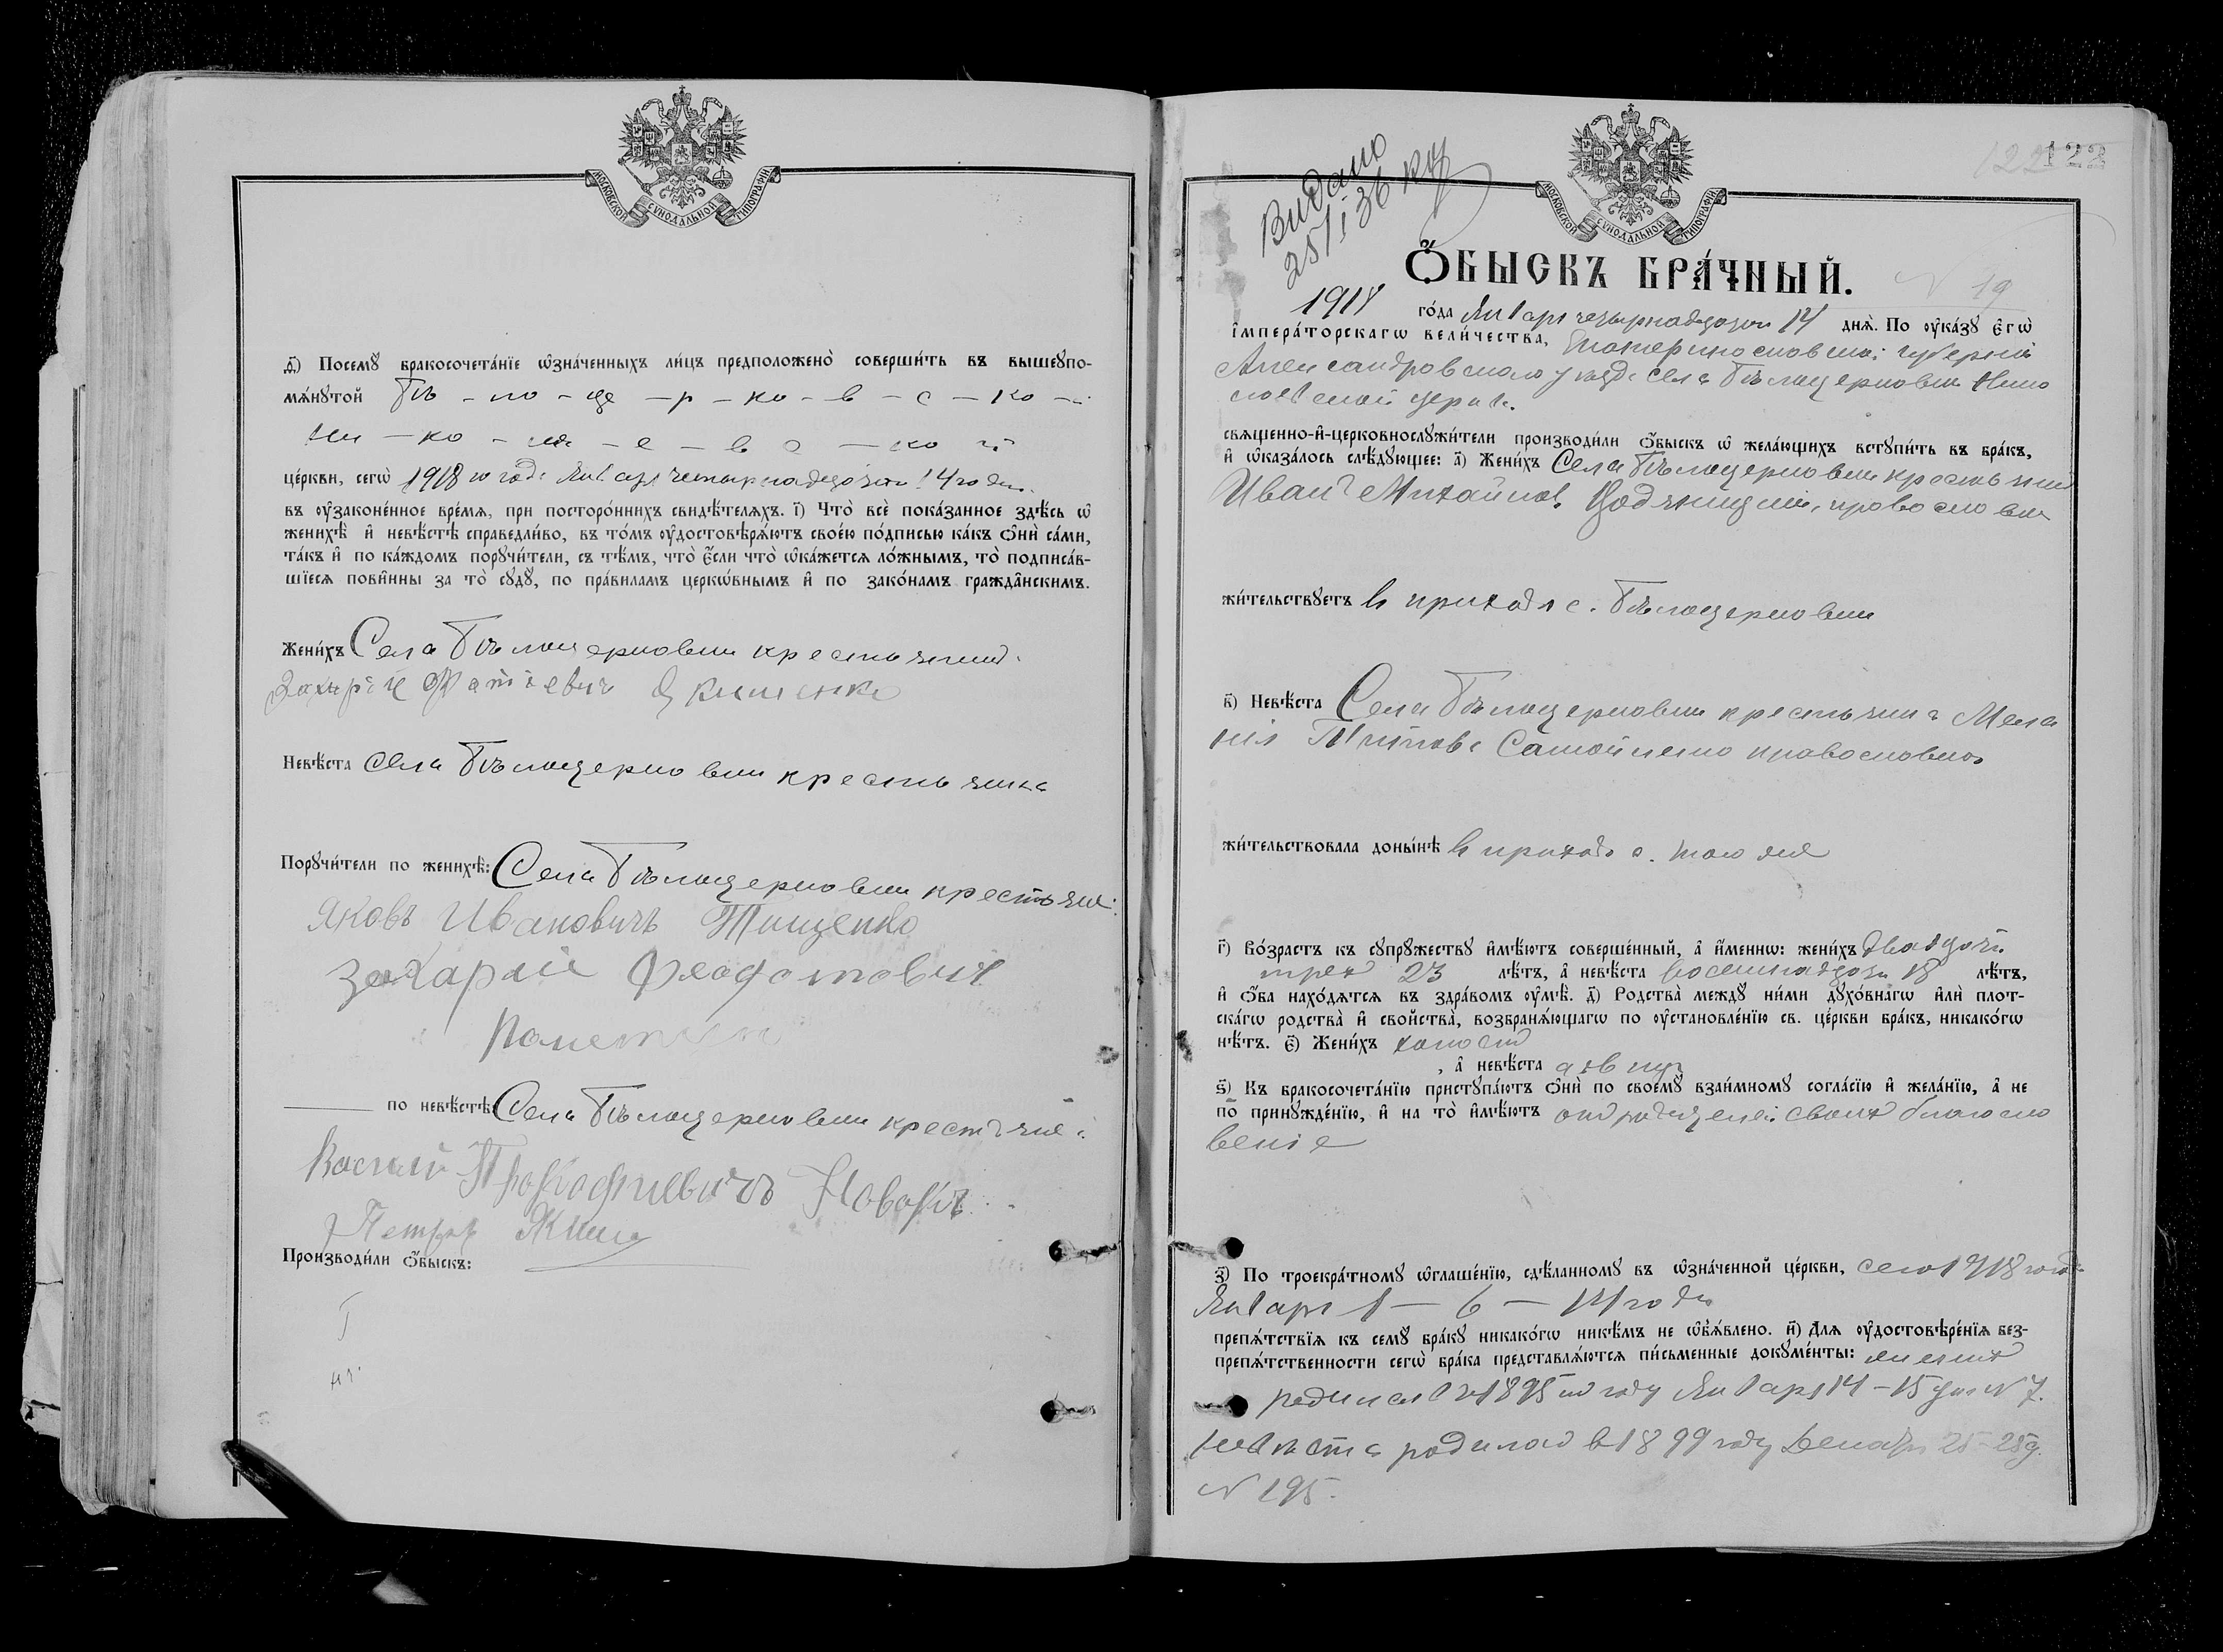 МОСКОВСКОЙ СѴНОДАЛЬНОЙ ТИПОГРАФІИ
ѳ҃) Посемꙋ̀ бракосочета́нїе ѡ҆зна́ченныхъ ли́цъ предположено̀ соверши́ть въ вышеꙋпо-
мѧ́нꙋтой Бѣ - ло - це - р - ко - в - с - ко -
Ни - ко - ла - е - в с - ко й
це́ркви, сегѡ̀ 1918 го года Января четырнадцатаго 14 го дня
въ ᲂу҆законе́нное вре́мѧ, при посторо́ннихъ свидѣ́телѧхъ. і҃) Что̀ всѐ пока́занное здѣ́сь ѡ҆
женихѣ̀ и҆ невѣ́стѣ справедли́во, въ то́мъ ᲂу҆достовѣрѧ́ютъ свое́ю по́дписью ка́къ ѻ҆нѝ са́ми,
та́къ и҆ по ка́ждомъ порꙋчи́тели, съ тѣ́мъ, что̀ є҆́сли что̀ ѡ҆ка́жетсѧ ло́жнымъ, то̀ подписа́в-
шїесѧ пови́нны за то̀ сꙋдꙋ̀, по пра́виламъ церкѡ́внымъ и҆ по зако́намъ гражда́нскимъ.
Жени́хъ Села Бѣлоцерковки крестьянинъ
Невѣ́ста села Бѣлоцерковки крестьянка
Порꙋчи́тели по женихѣ̀: Села Бѣлоцерковки крестьяне:
Яковъ Ивановичъ Тищенко
Захарій Феодотович
по невѣ́стѣ: Села Бѣлоцерковки крестьяне:
Василий Прокофиевичъ Новакъ
Петръ
Производи́ли ѻ҆́быскъ:
МОСКОВСКОЙ СѴНОДАЛЬНОЙ ТИПОГРАФІИ
122
Видано
25/I 36
Ѻ҆́БЫСКЪ БРА́ЧНЫЙ.
N 19
1918 го́да Января четырнадцатаго 14 днѧ̀. По ᲂу҆ка́зꙋ Є҆гѡ̀
і҆мпера́торскагѡ вели́чества, Екатеринославской губерніи
Александровскаго уѣзда села Бѣлоцерковки Нико
лаевской церкви
свѧще́нно-и҆-церковнослꙋжи́тели производи́ли ѻ҆́быскъ ѡ҆ жела́ющихъ встꙋпи́ть въ бра́къ,
и҆ ѡ҆каза́лось слѣ́дꙋющее: а҃) Жени́хъ Села Бѣлоцерковки крестьянинъ
Иванъ Михайлов. православн
жи́тельствꙋетъ в приходѣ с. Бѣлоцерковки
в҃) Невѣ́ста Села Бѣлоцерковки крестьянка Мела
нія Титова Самойленко православная
жи́тельствовала доны́нѣ в приходѣ с. того же
г҃) Во́зрастъ къ сꙋпрꙋ́жествꙋ и҆мѣ́ютъ соверше́нный, а҆ и҆́меннѡ: жени́хъ двадцати
трех 23 лѣ́тъ, а҆ невѣ́ста восемнадцати 18 лѣ́тъ,
и҆ ѻ҆́ба нахо́дѧтсѧ въ здра́вомъ ᲂу҆мѣ̀. д҃) Родства̀ междꙋ̀ ни́ми дꙋхо́внагѡ и҆лѝ плот-
ска́гѡ родства̀ и҆ свойства̀, возбранѧ́ющагѡ по ᲂу҆становле́нїю св. це́ркви бра́къ, никако́гѡ
нѣ́тъ. є҃) Жени́хъ холостъ
, а҆ невѣ́ста дѣвица
ѕ҃) Къ бракосочета́нїю пристꙋпа́ютъ ѻ҆нѝ по своемꙋ̀ взаи́мномꙋ согла́сїю и҆ жела́нїю, а҆ не
по принꙋжде́нїю, и҆ на то̀ и҆мѣ́ютъ от родителей своих благосло
веніе
з҃) По троекра́тномꙋ ѡ҆глаше́нїю, сдѣ́ланномꙋ въ ѡ҆зна́ченной це́ркви, сего 1918 года
Января 1 – 6 – 14 го дня
препѧ́тствїѧ къ семꙋ̀ бра́кꙋ никако́гѡ никѣ́мъ не ѡ҆б̾ѧ́влено. и҃) Длѧ ᲂу҆достовѣре́нїѧ без-
препѧ́тственности сегѡ̀ бра́ка представлѧ́ютсѧ пи́сьменные докꙋме́нты: жених
родился в 1895 м году Января 14 – 15 дня N 7.
невѣста родилась в 1899 году Декабря 25 - 25 д.
N 195.